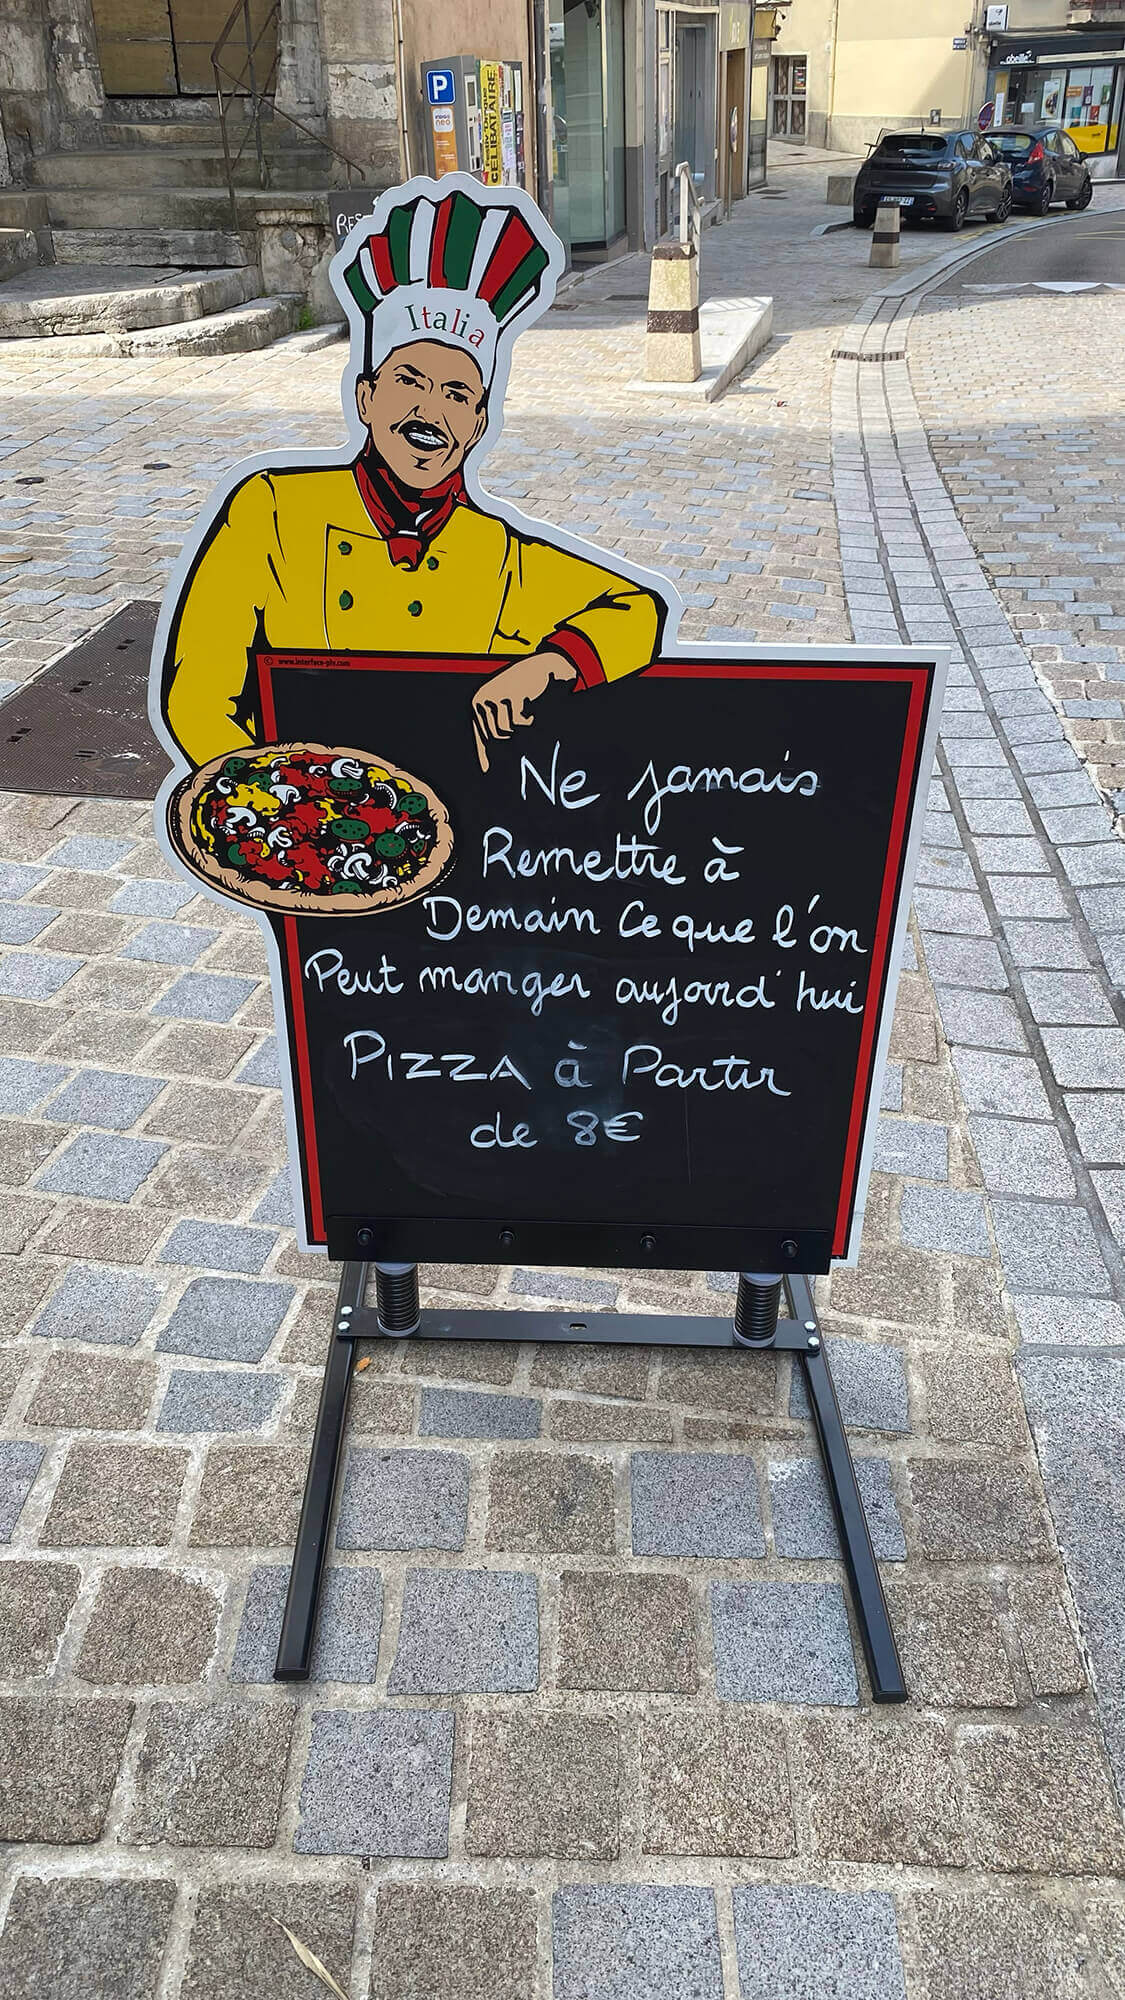 P
indigo
neo
CÉLIBATAIRE
abeille
RES
Italia
© www.interface-plv.com
Ne jamais
Remettre à
Demain Ce que l'on
Peut manger aujourd'hui
PIZZA à Partir
de 8€